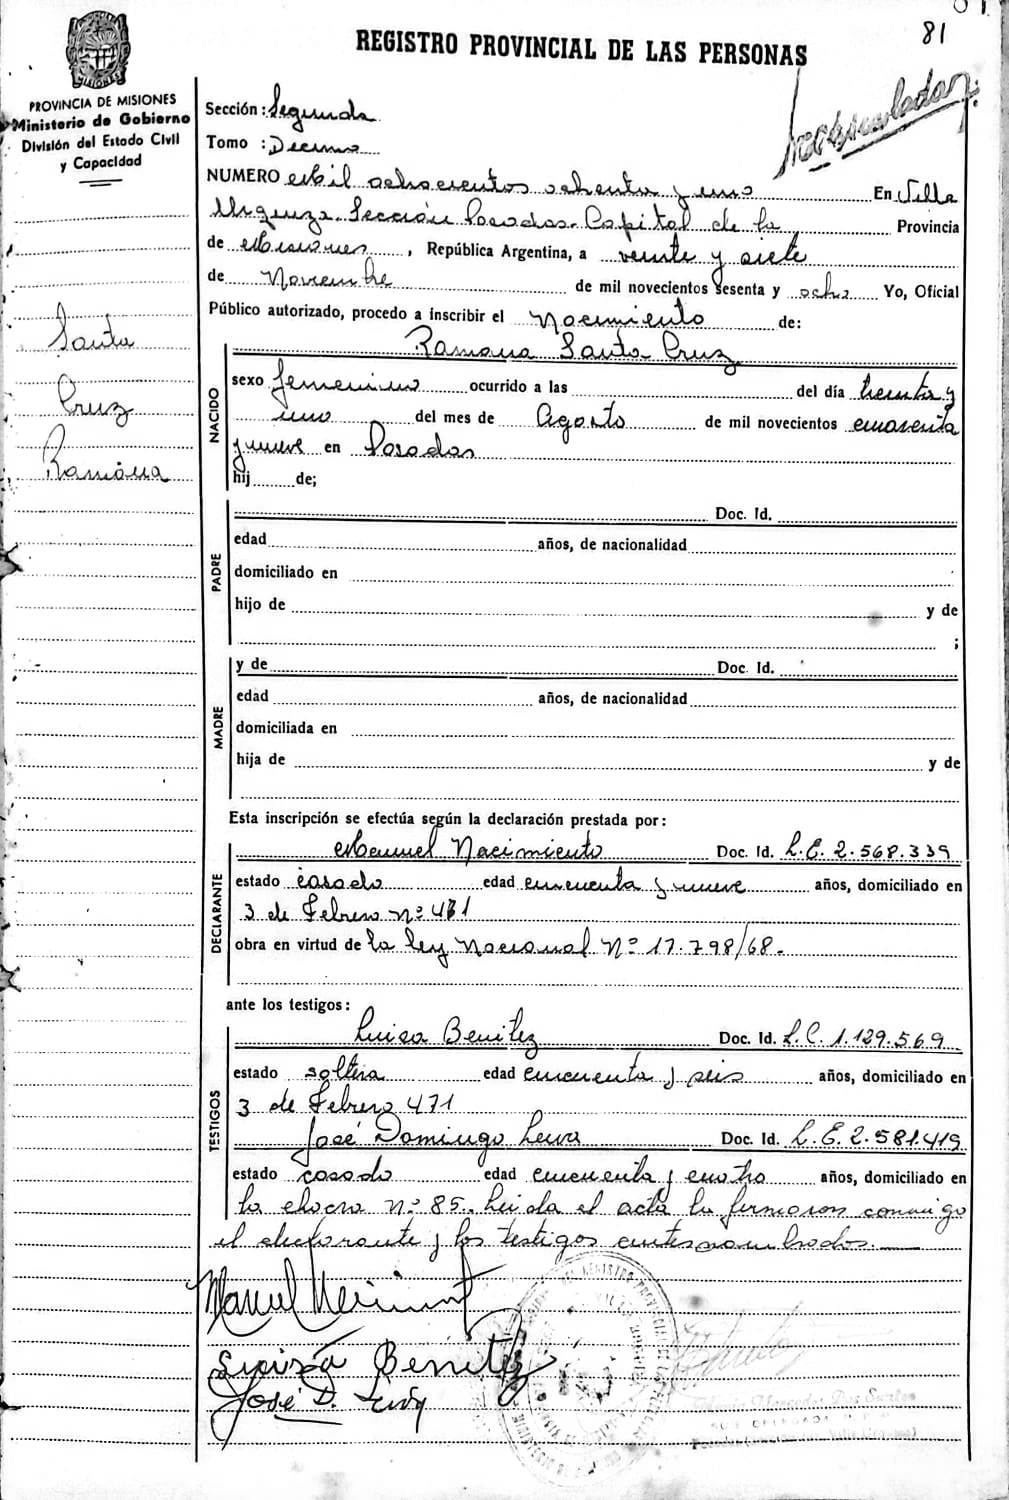 81
REGISTRO PROVINCIAL DE LAS PERSONAS
PROVINCIA DE MISIONES
Ministerio de Gobierno
División del Estado Civil
y Capacidad
Sección: Segunda
Tomo : Decimo
NUMERO Mil ochocientos ochenta y uno En Villa
Urquiza Sección Posadas-Capital de la Provincia
de Misiones, República Argentina, a veinte y siete
de Noviembre de mil novecientos sesenta y ocho Yo, Oficial
Público autorizado, procedo a inscribir el Nacimiento de:
Santa
Cruz
Ramona
NACIDO
Ramona Santa Cruz
sexo femenino ocurrido a las del día treinta y
uno del mes de Agosto de mil novecientos cuarenta
y nueve en Posadas
hij de;
PADRE
Doc. Id.
edad años, de nacionalidad
domiciliado en
hijo de y de
;
MADRE
y de Doc. Id.
edad años, de nacionalidad
domiciliada en
hija de y de
Esta inscripción se efectúa según la declaración prestada por:
DECLARANTE
Manuel Nacimiento Doc. Id. L.E. 2.568.339
estado casado edad cincuenta y nueve años, domiciliado en
3 de Febrero Nº 471
obra en virtud de la ley Nacional Nº 17.798/68.
ante los testigos:
TESTIGOS
Luisa Benitez Doc. Id. L.C. 1.129.569
estado soltera edad cincuenta y seis años, domiciliado en
3 de Febrero 471
José Domingo Doc. Id. L.E. 2.581.419
estado casado edad cincuenta y cuatro años, domiciliado en
la chacra Nº 85. Leída el acta la firmaron conmigo
el declarante y los testigos antesnombrados.
Manuel
Luisa Benitez
José D.